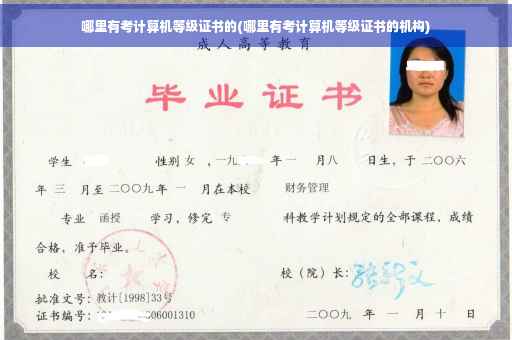 哪里有考计算机等级证书的(哪里有考计算机等级证书的机构)
成人高等教育
毕业证书
学生 性别 女 ,一九 年 一 月 八 日生,于 二〇〇六
年 三 月至 二〇〇九 年 一 月在本校 财务管理
专业 函授 学习,修完 专 科教学计划规定的全部课程,成绩
合格,准予毕业。
校 名: 校(院)长:
批准文号:教计[1998]33号
证书编号: 06001310 二〇〇九 年 一 月 十 日